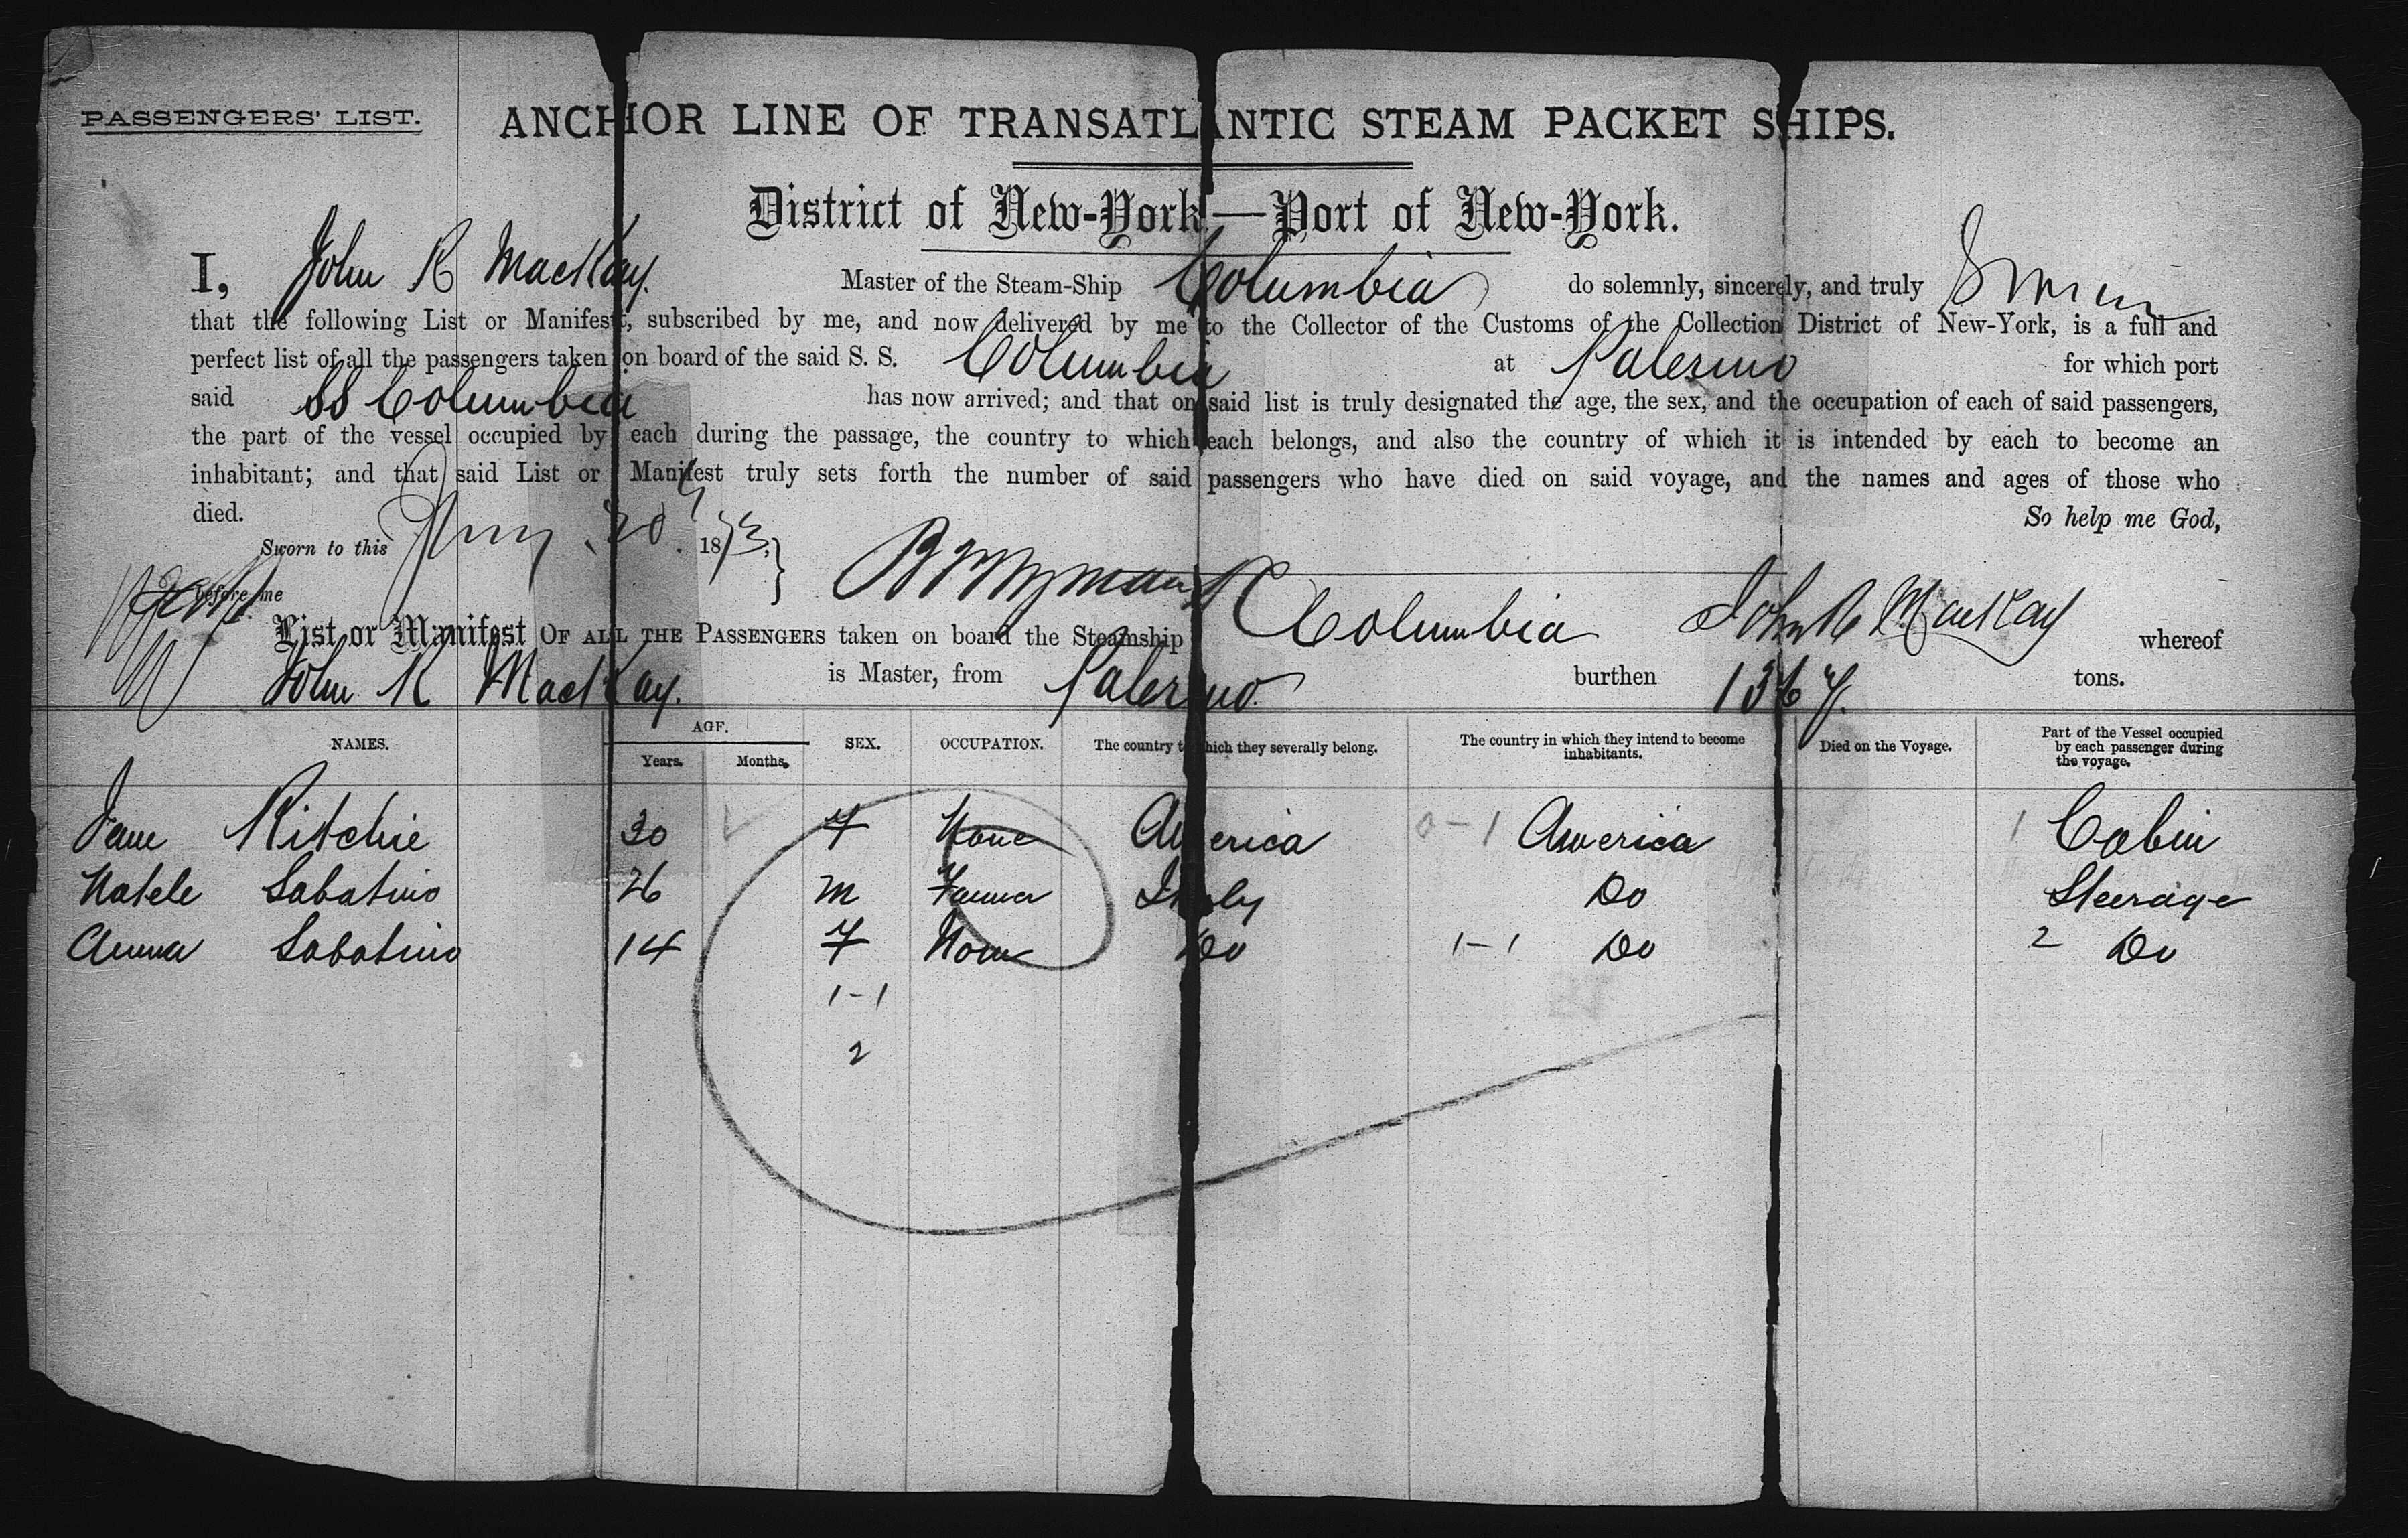 PASSENGERS' LIST.
ANCHOR LINE OF TRANSATLANTIC STEAM PACKET SHIPS.
District of New-York—Port of New-York.
I, John R MacKay. Master of the Steam-Ship Columbia do solemnly, sincerely, and truly Swear
that the following List or Manifest, subscribed by me, and now delivered by me to the Collector of the Customs of the Collection District of New-York, is a full and
perfect list of all the passengers taken on board of the said S. S. Columbia at Palermo for which port
said SS Columbia has now arrived; and that on said list is truly designated the age, the sex, and the occupation of each of said passengers,
the part of the vessel occupied by each during the passage, the country to which each belongs, and also the country of which it is intended by each to become an
inhabitant; and that said List or Manifest truly sets forth the number of said passengers who have died on said voyage, and the names and ages of those who
died. So help me God,
Sworn to this 20 1873, }
before me John R MacKay
List or Manifest OF ALL THE PASSENGERS taken on board the Steamship Columbia whereof
John R MacKay. is Master, from Palermo. burthen 1367. tons.
NAMES. AGE. SEX. OCCUPATION. The country to which they severally belong. The country in which they intend to become inhabitants. Died on the Voyage. Part of the Vessel occupied by each passenger during the voyage.
Years. Months.
Jane Ritchie 30 F None America 0-1 America 1 Cabin
Natele Sabatino 26 M Farmer Italy Do Steerage
Anna Sabatino 14 F None Do 1-1 Do 2 Do
1-1
2